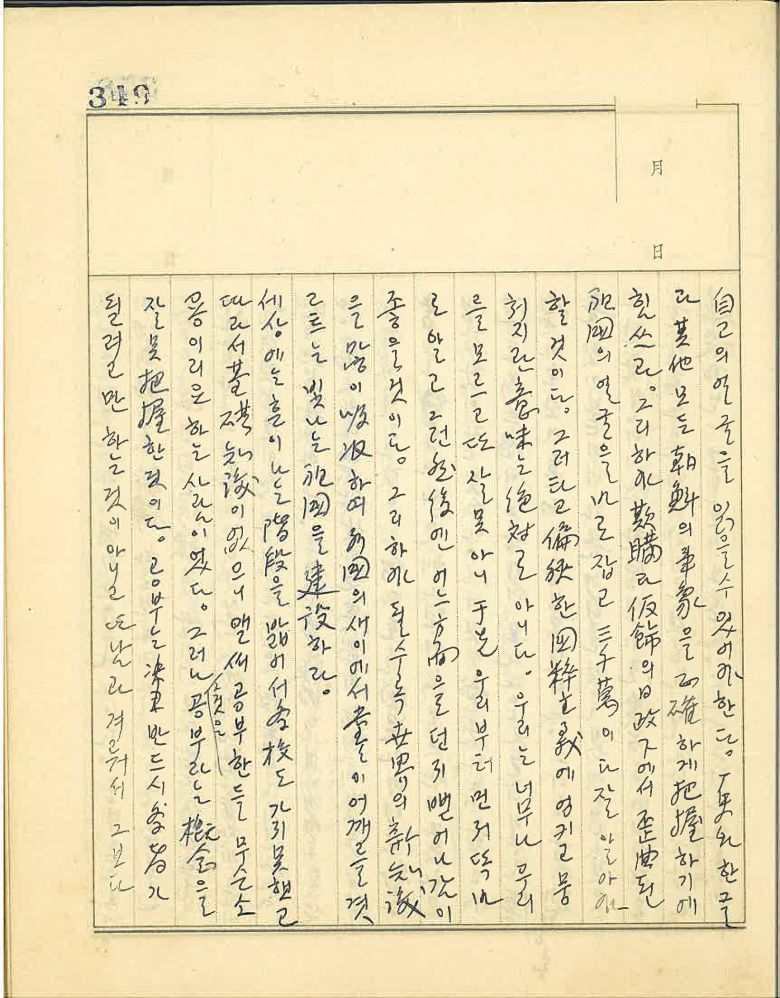 349
月
日
自己의 얼굴을 읽을수 있어야한다. 한글
과 其他 모든 朝鮮의 事象을 正確하게 把握하기에
힘쓰라. 그리하야 欺瞞과 仮飾의 日政下에서 歪曲된
祖國의 얼굴을 바로잡고 三千萬이 다 잘 알아야
할것이다. 그러타고 偏狹한 國粹主義에 엉키고 뭉
취지란 意味는 絶対로 아니다. 우리는 너무나 우리
를 모르고 또 잘못아니 于先 우리부터 먼저 똑바
로 알고 그런 然後엔 어느 方面으로 던지 뻗어나감이
좋을것이다. 그리하야 될수록 世界의 新知識
을 많이 吸收하여 列國의 새이에서 어깨를 겻
르트는 빛나는 祖國을 建設하라.
세상에는 흔이 나는 階段을 밟어서 學校도 가지못했고
따라서 基礎知識이 없으니 앨써 공부한들 무슨 소
용이리요 하는 사람이 있다. 그러나 공부라는 槪念을
잘못 把握한것이다. 공부는 決코 반드시 學者가
될려고만 하는것이 아니고 또 남과 겨루어서 그보다